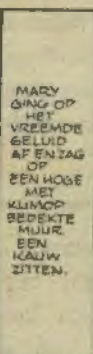 MARY
GING OP
HET
VREEMDE
GELUID
AF EN ZAG
OP
EEN HOGE
MET
KLIMOP
BEDEKTE
MUUR
EEN
KAUW
ZITTEN.